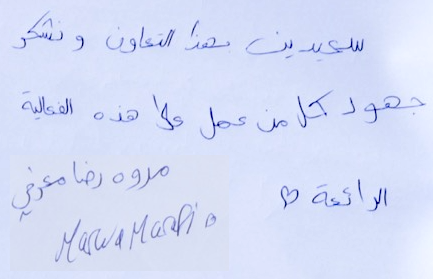 سعيدين بهذا التعاون و نشكر
جهود كل من عمل على هذه الفعالية
الرائعة ♡
مروه رضا معرفي
Marwa Marafi